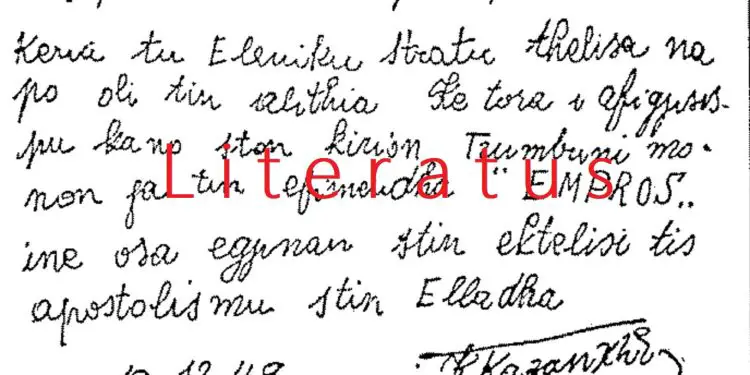 Keria tu Eleniku stratu thelisa na
po oli tin alithia Ke tora i afigjisis
pu kano ston kirion Tzumbuni mo-
non ja tin efimeridha "EMPROS"
ine osa egjinan stin ektelisi tis
apostolis mu stin Elladha
12.49
Literatus